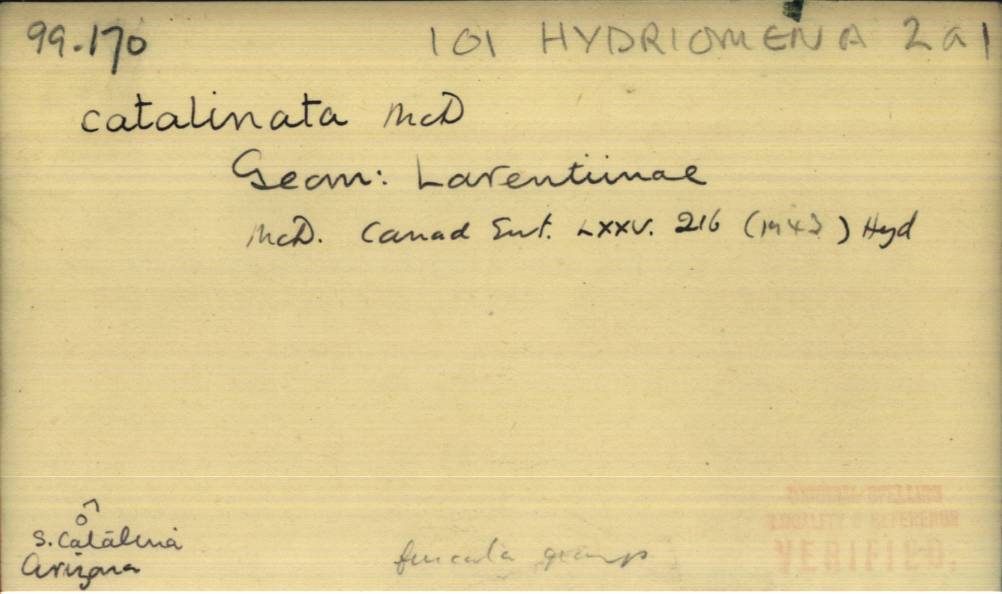 99.170 101 HYDRIOMENA 2a1
catalinata McD
Geom: Larentiinae
McD. Canad Ent. LXXV. 216 (1943) Hyd
♂
S. Catalina
Arizona
group
LOCALITY & REFERENCE
VERIFIED.